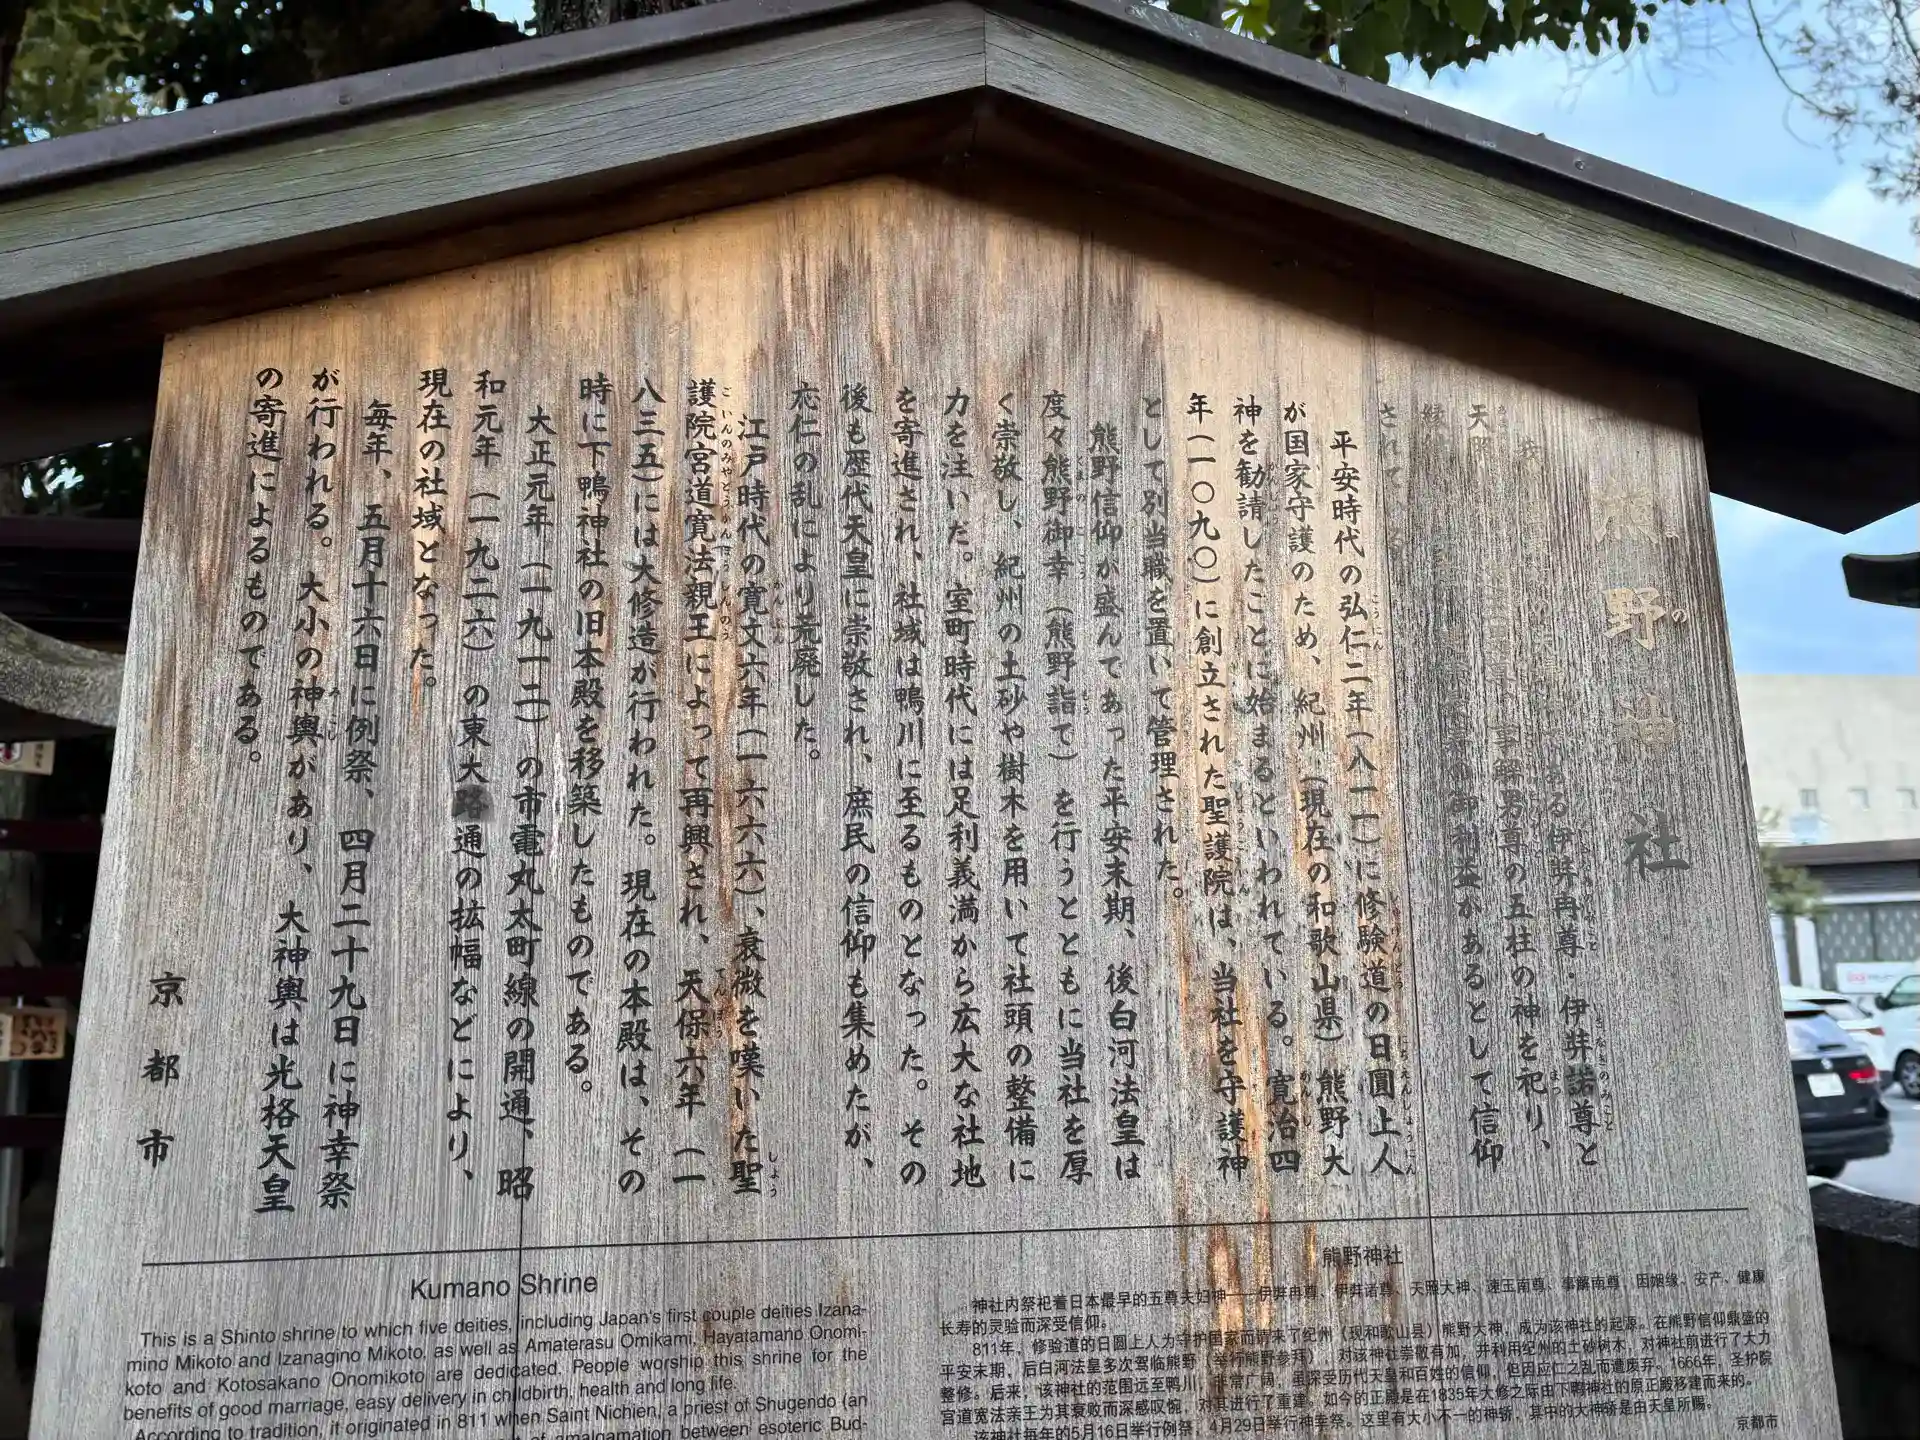 熊野神社
ある伊弉冉尊・伊弉諾尊と
天照 事解男尊の五柱の神を祀り、
縁結 御利益があるとして信仰
されて
平安時代の弘仁二年(八一一)に修験道の日圓上人
が国家守護のため、紀州(現在の和歌山県)熊野大
神を勧請したことに始まるといわれている。寛治四
年(一〇九〇)に創立された聖護院は、当社を守護神
として別当職を置いて管理された。
熊野信仰が盛んであった平安末期、後白河法皇は
度々熊野御幸(熊野詣で)を行うとともに当社を厚
く崇敬し、紀州の土砂や樹木を用いて社頭の整備に
力を注いだ。室町時代には足利義満から広大な社地
を寄進され、社域は鴨川に至るものとなった。その
後も歴代天皇に崇敬され、庶民の信仰も集めたが、
応仁の乱により荒廃した。
江戸時代の寛文六年(一六六六)、衰微を嘆いた聖
護院宮道寛法親王によって再興され、天保六年(一
八三五)には大修造が行われた。現在の本殿は、その
時に下鴨神社の旧本殿を移築したものである。
大正元年(一九一二)の市電丸太町線の開通、昭
和元年(一九二六)の東大路通の拡幅などにより、
現在の社域となった。
毎年、五月十六日に例祭、四月二十九日に神幸祭
が行われる。大小の神輿があり、大神輿は光格天皇
の寄進によるものである。
京都市
Kumano Shrine
This is a Shinto shrine to which five deities, including Japan's first couple deities Izana-
mino Mikoto and Izanagino Mikoto, as well as Amaterasu Omikami, Hayatamano Onomi-
koto and Kotosakano Onomikoto are dedicated. People worship this shrine for the
benefits of good marriage, easy delivery in childbirth, health and long life.
According to tradition, it originated in 811 when Saint Nichien, a priest of Shugendo (an
of amalgamation between esoteric Bud-
熊野神社
神社内祭祀着日本最早的五尊夫妇神——伊弉冉尊、伊弉诸尊、天照大神、速玉南尊、事解南尊，因姻缘、安产、健康
长寿的灵验而深受信仰。
811年，修验道的日圆上人为守护国家而请来了纪州（现和歌山县）熊野大神，成为该神社的起源。在熊野信仰鼎盛的
平安末期，后白河法皇多次驾临熊野（举行熊野参拜），对该神社崇敬有加，并利用纪州的土砂树木，对神社前进行了大力
整修。后来，该神社的范围远至鸭川，非常广阔，虽深受历代天皇和百姓的信仰，但因应仁之乱而遭废弃。1666年，圣护院
宫道宽法亲王为其衰败而深感叹惋，对其进行了重建。如今的正殿是在1835年大修之际由下鸭神社的原正殿移建而来的。
该神社每年的5月16日举行例祭，4月29日举行神幸祭。这里有大小不一的神轿，其中的大神轿是由天皇所赐。
京都市